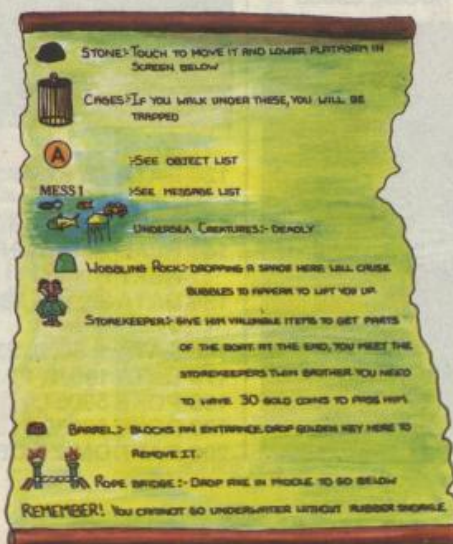 STONE:- TOUCH TO MOVE IT AND LOWER PLATFORM IN
SCREEN BELOW
CAGES:- IF YOU WALK UNDER THESE, YOU WILL BE
TRAPPED
A
:-SEE OBJECT LIST
MESS 1 :-SEE MESSAGE LIST
UNDERSEA CREATURES:- DEADLY
WOBBLING ROCK:- DROPPING A SPADE HERE WILL CAUSE
BUBBLES TO APPEAR TO LIFT YOU UP.
STOREKEEPER:- GIVE HIM VALUABLE ITEMS TO GET PARTS
OF THE BOAT. AT THE END, YOU MEET THE
STOREKEEPERS TWIN BROTHER YOU NEED
TO HAVE 30 GOLD COINS TO PASS HIM.
BARREL:- BLOCKS AN ENTRANCE. DROP GOLDEN KEY HERE TO
REMOVE IT.
ROPE BRIDGE:- DROP AXE IN MIDDLE TO GO BELOW
REMEMBER! YOU CANNOT GO UNDERWATER WITHOUT RUBBER SNORKLE